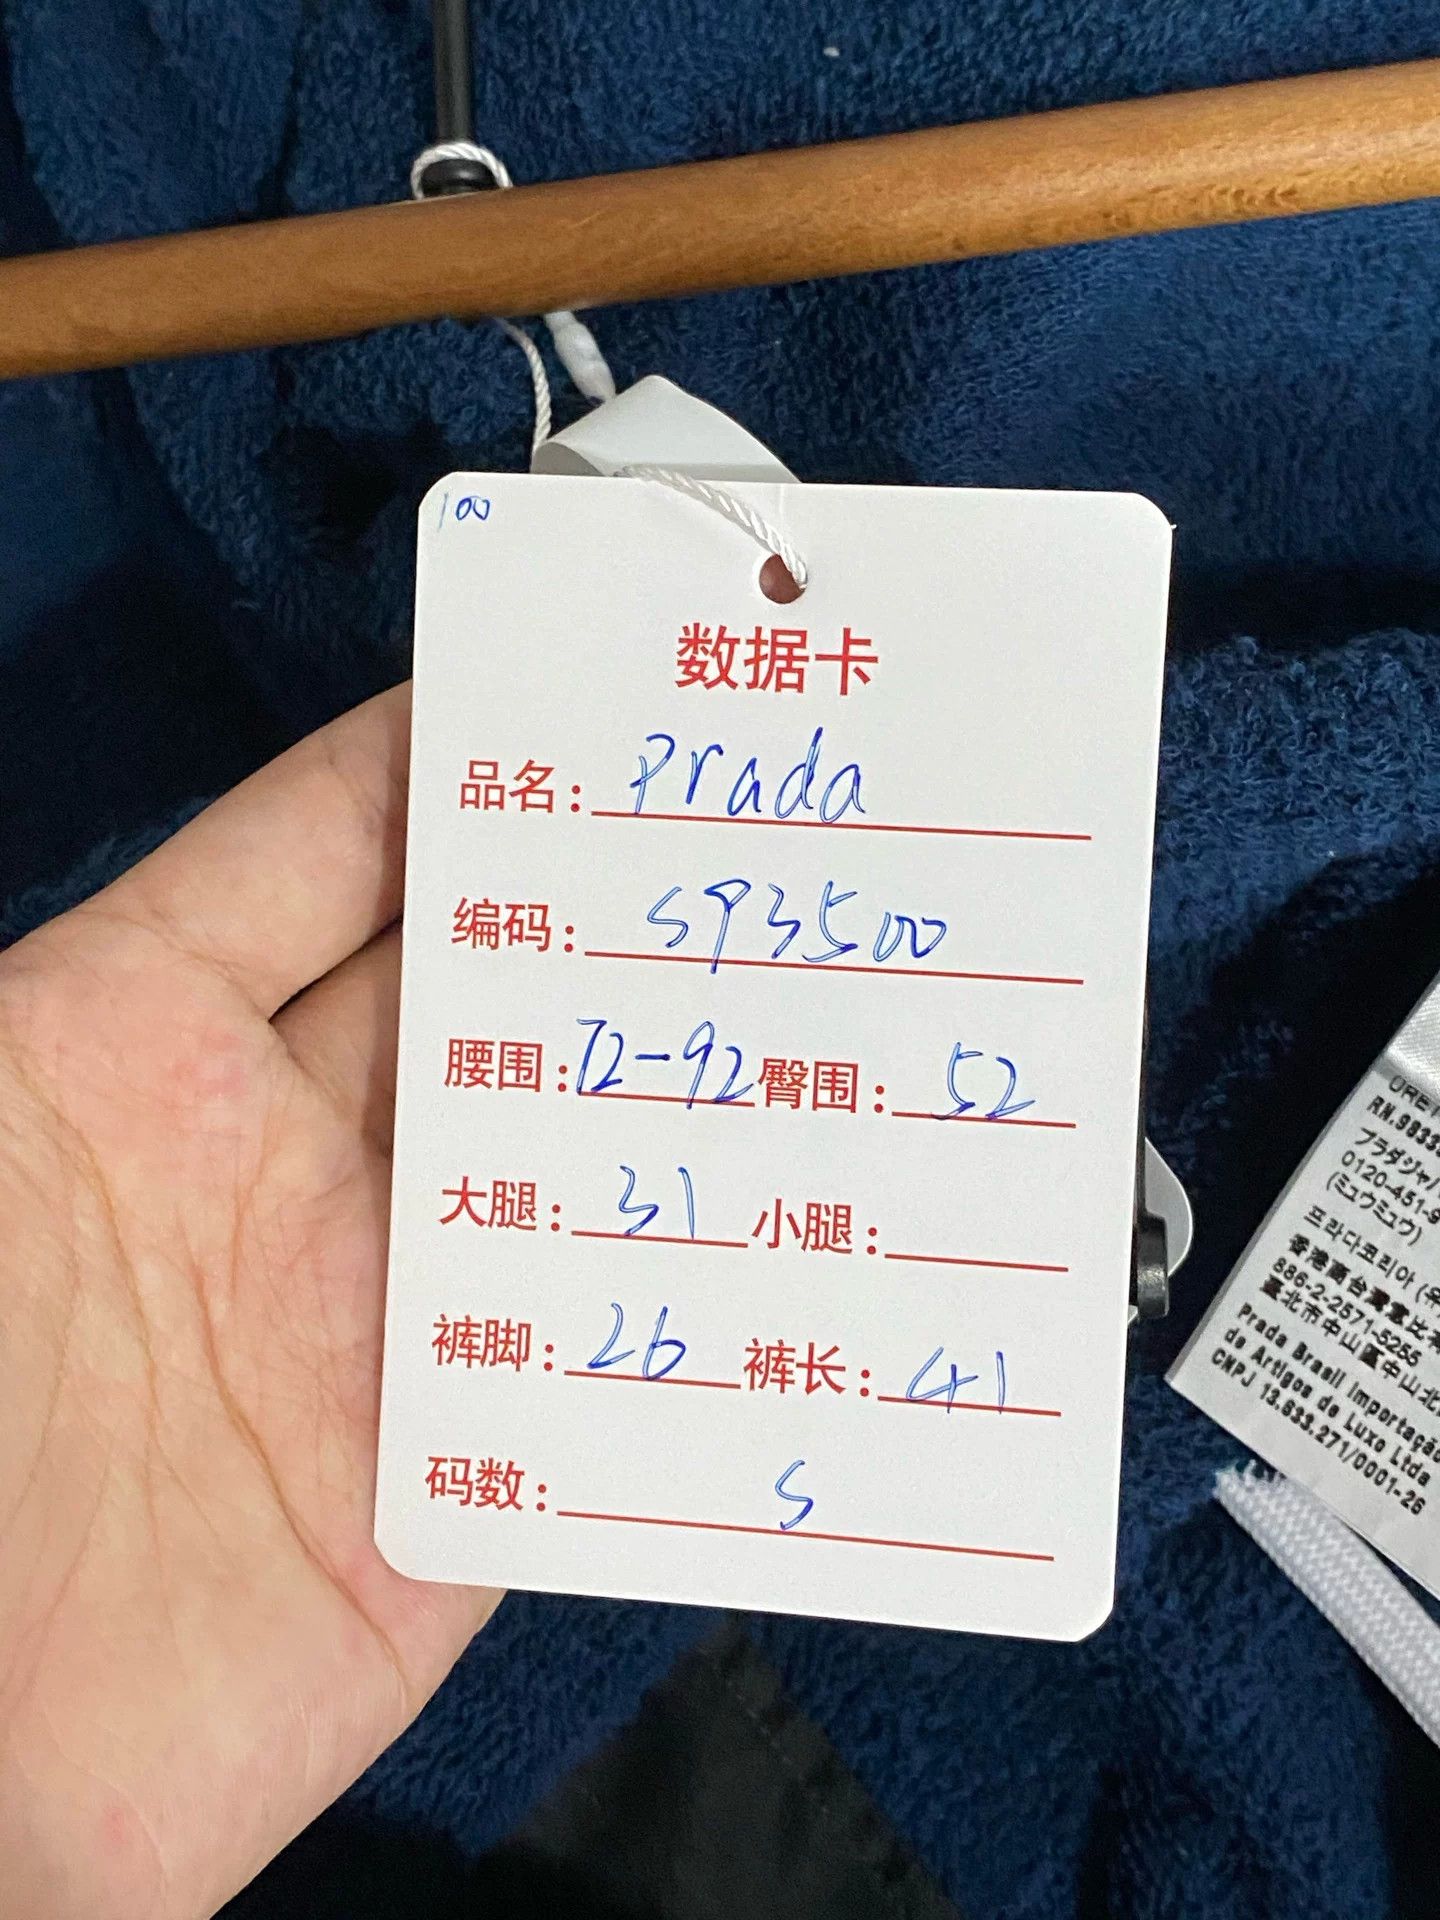 100
数据卡
品名: Prada
编码: SP3500
腰围: 72-92 臀围: 52
大腿: 31 小腿:
裤脚: 26 裤长: 41
码数: S
プラダジャ
0120-451-9
(ミュウミュウ)
프라다코리아 (유
886-2-2571-5255
臺北市中山區中山北
Prada Brasil Importação
de Artigos de Luxo Ltda
CNPJ 13.633.271/0001-26